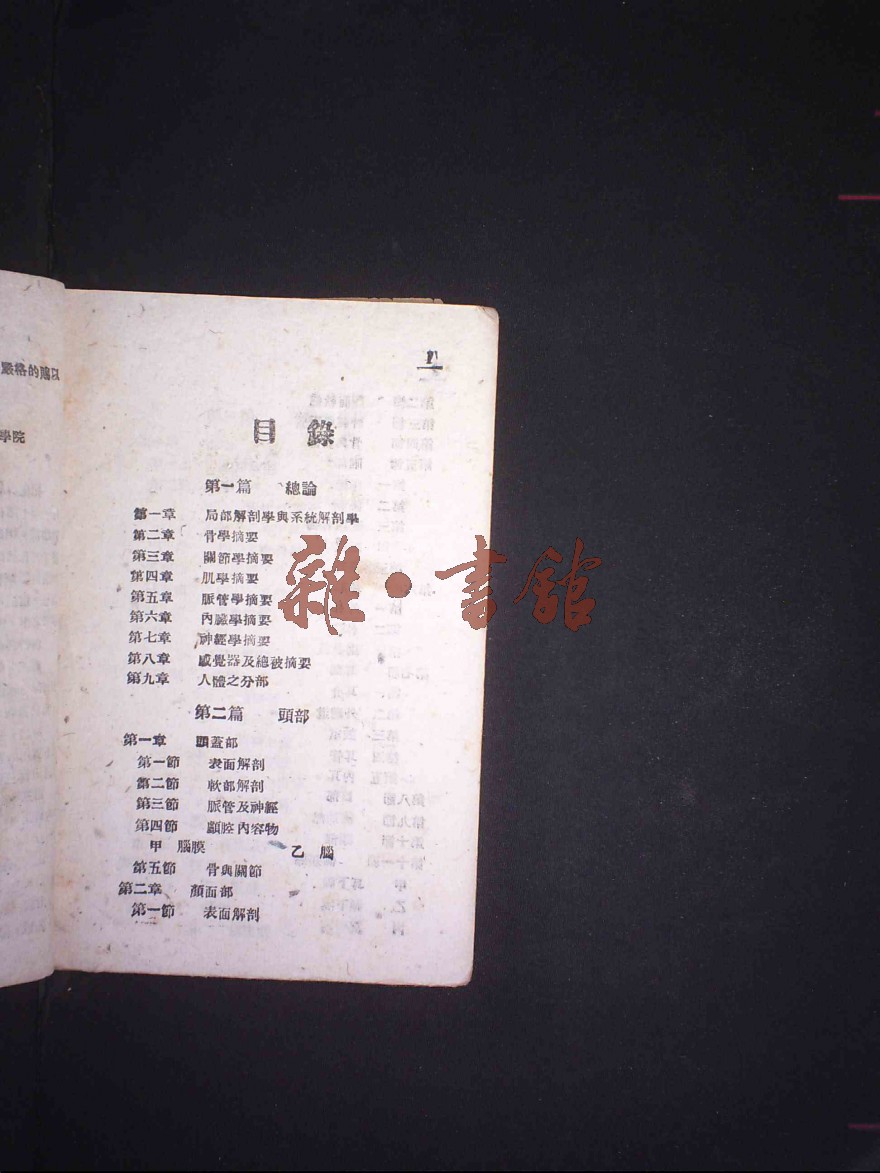 嚴格的
學院
目錄
第一篇 總論
第一章 局部解剖學與系統解剖學
第二章 骨學摘要
第三章 關節學摘要
第四章 肌學摘要
第五章 脈管學摘要
第六章 內臟學摘要
第七章 神經學摘要
第八章 感覺器及總被摘要
第九章 人體之分部
第二篇 頭部
第一章 頭蓋部
第一節 表面解剖
第二節 軟部解剖
第三節 脈管及神經
第四節 顱腔內容物
甲 腦膜 乙 腦
第五節 骨與關節
第二章 顏面部
第一節 表面解剖
雜·書館